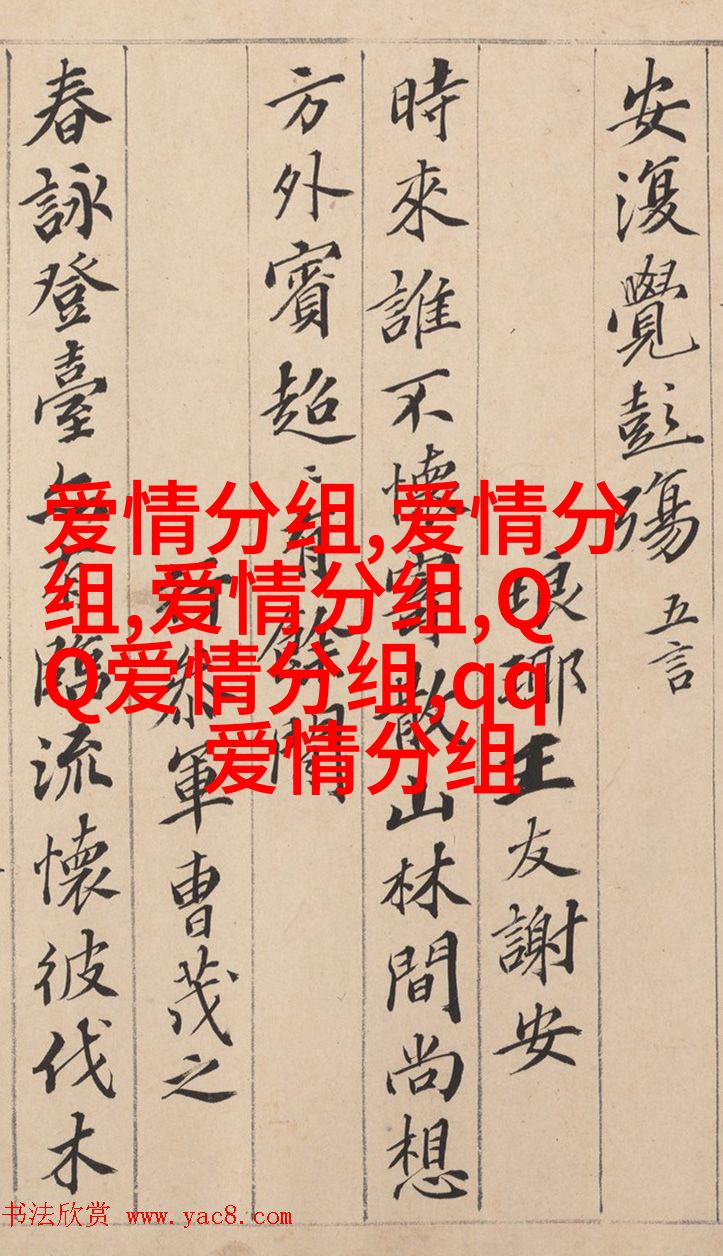 安復覺彭殤 五言
琅琊王友謝安
時來誰不懷寄散山林間尚想
方外賓超〻有餘閒
參軍曹茂之
春詠登臺亦有臨流懷彼伐木
爱情分组,爱情分
组,爱情分组,Q
Q爱情分组,qq
爱情分组
书法欣赏 www.yac8.com